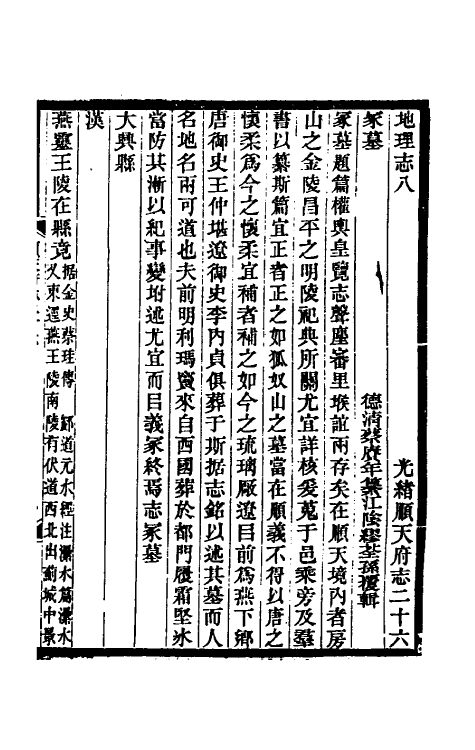 地理志八　光緒順天府志二十六
冢墓　德清蔡賡年纂江陰繆荃孫覆輯
冢墓題篇權輿皇覽志聲塵審里堠誼兩存矣在順天境內者房
山之金陵昌平之明陵祀典所關尤宜詳核爰蒐于邑乘旁及羣
書以纂斯篇宜正者正之如狐奴山之墓當在順義不得以唐之
懷柔爲今之懷柔宜補者補之如今之琉璃厰遼㠯前爲燕下鄉
唐御史王仲堪遼御史李內貞俱葬于斯据志銘以述其墓而人
名地名兩可道也夫前明利瑪竇來自西國葬於都門履霜堅冰
當防其漸以紀事變坿述尤宜而㠯義冢終焉志冢墓
大興縣
漢
燕靈王陵在縣竟
据金史蔡珪傳　酈道元水經注㶟水篇㶟水
又東逕燕王陵南陵有伏道西北出薊城中景